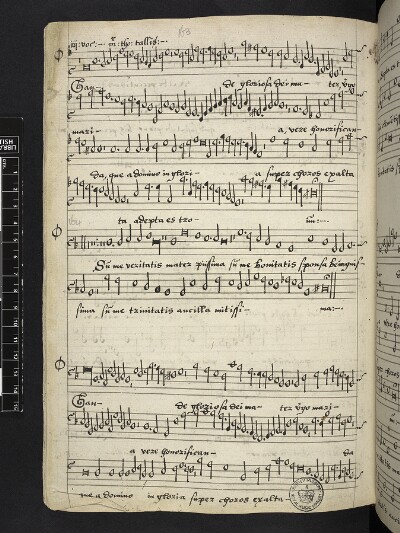 iij: voc: mr: tho: tallis:
Gau- de gloriosa dei ma- ter v̄go
mari- a, vere honorifican-
da, que a domino in glori- a super choros exalta
ta adepta es tro- nū:
Sūme veritatis mater piissima sūme bonitatis sponsa benignis-
sima sūme trinitatis ancilla mitissi- ma:
Gau- de gloriosa dei ma- ter v̄go mari-
a vere honorifican- da
que a domino in gloria super choros exalta-